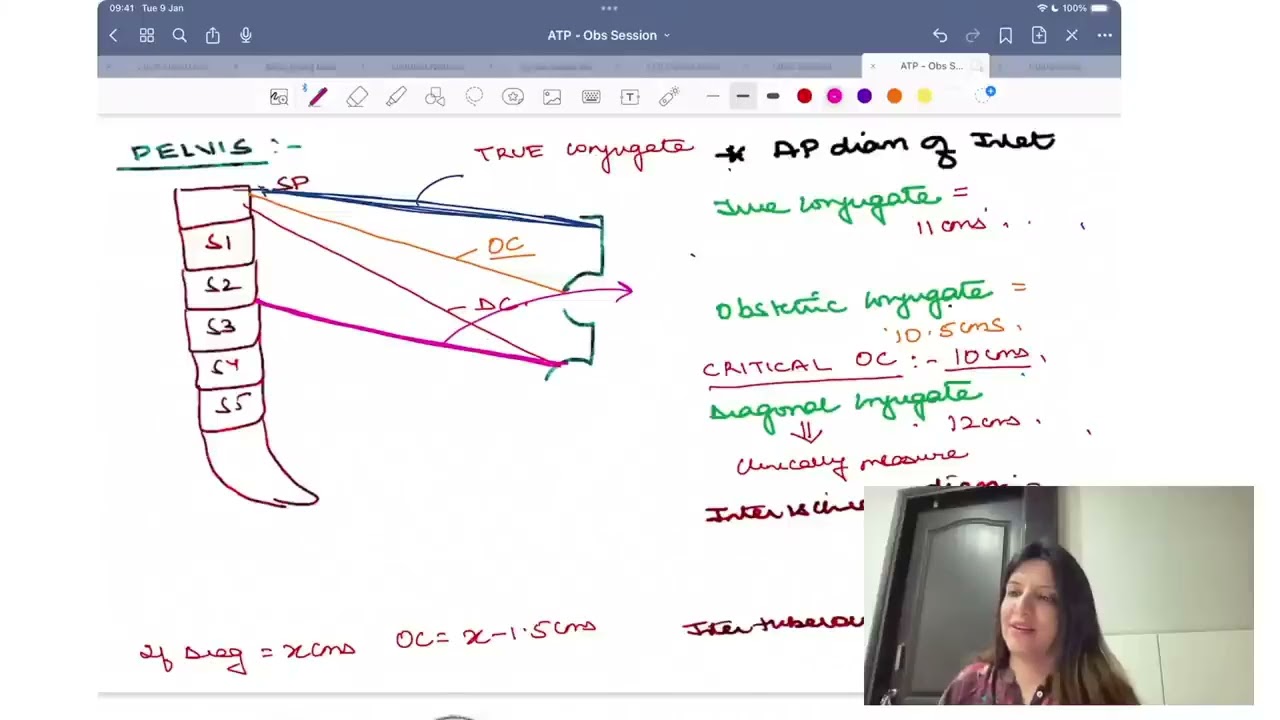 09:41 Tue 9 Jan
100%
ATP - Obs Session
ATP - Obs S...
PELVIS :-
TRUE conjugate
* AP diam of Inlet
SP
True conjugate =
11 cms.
S1
OC
S2
DC
Obstetric conjugate =
10.5 cms.
S3
CRITICAL OC :- 10 cms.
S4
Diagonal conjugate
S5
12 cms.
⇓
clinically measure
If Diag = x cms OC = x - 1.5 cms